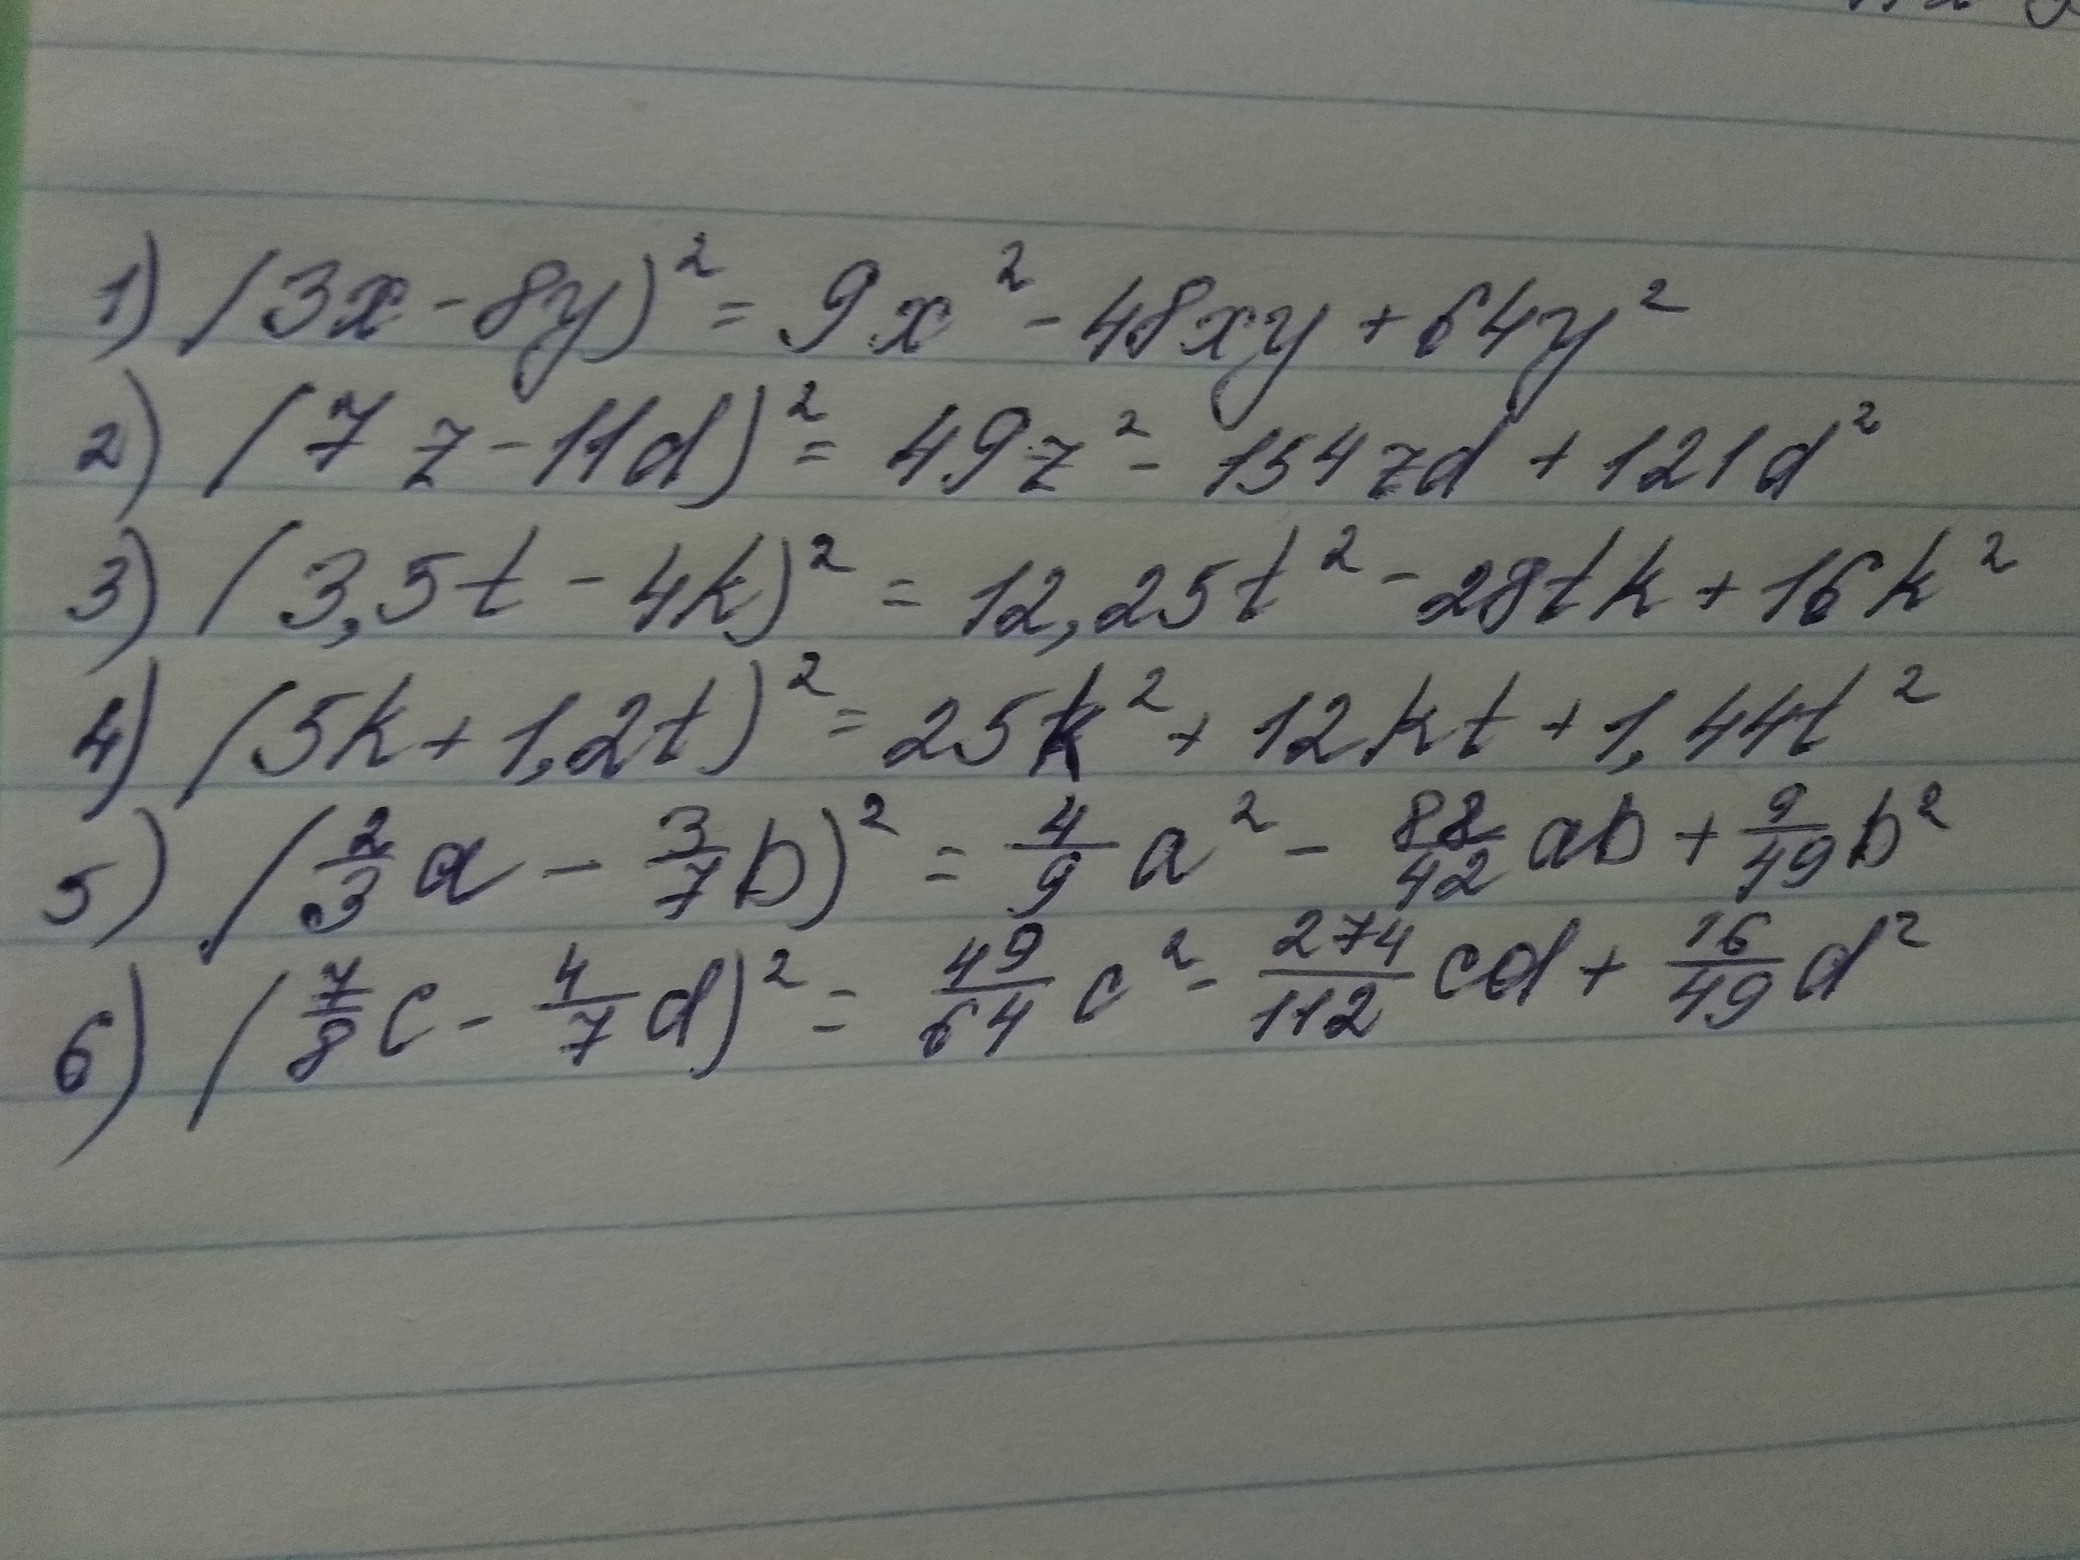 1) (3x - 8y)² = 9x² - 48xy + 64y²
2) (7z - 11d)² = 49z² - 154zd + 121d²
3) (3,5t - 4k)² = 12,25t² - 28tk + 16k²
4) (5k + 1,2t)² = 25k² + 12kt + 1,44t²
5) (2/3 a - 3/7 b)² = 4/9 a² - 88/42 ab + 9/49 b²
6) (7/8 c - 4/7 d)² = 49/64 c² - 274/112 cd + 16/49 d²